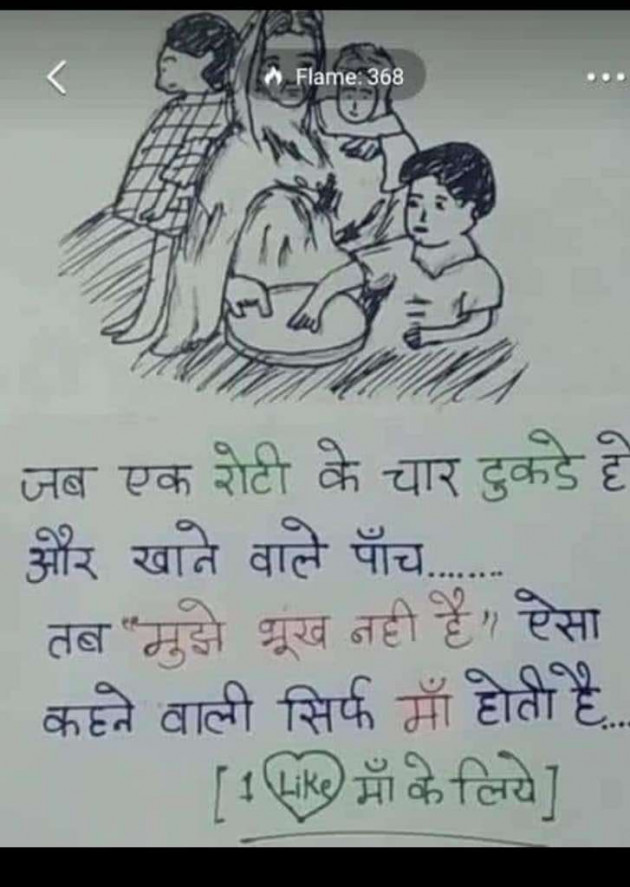 Flame: 368
जब एक रोटी के चार टुकडे हो
और खाने वाले पाँच........
तब "मुझे भूंख नही है" ऐसा
कहने वाली सिर्फ माँ होती है....
[1 Like माँ के लिये]